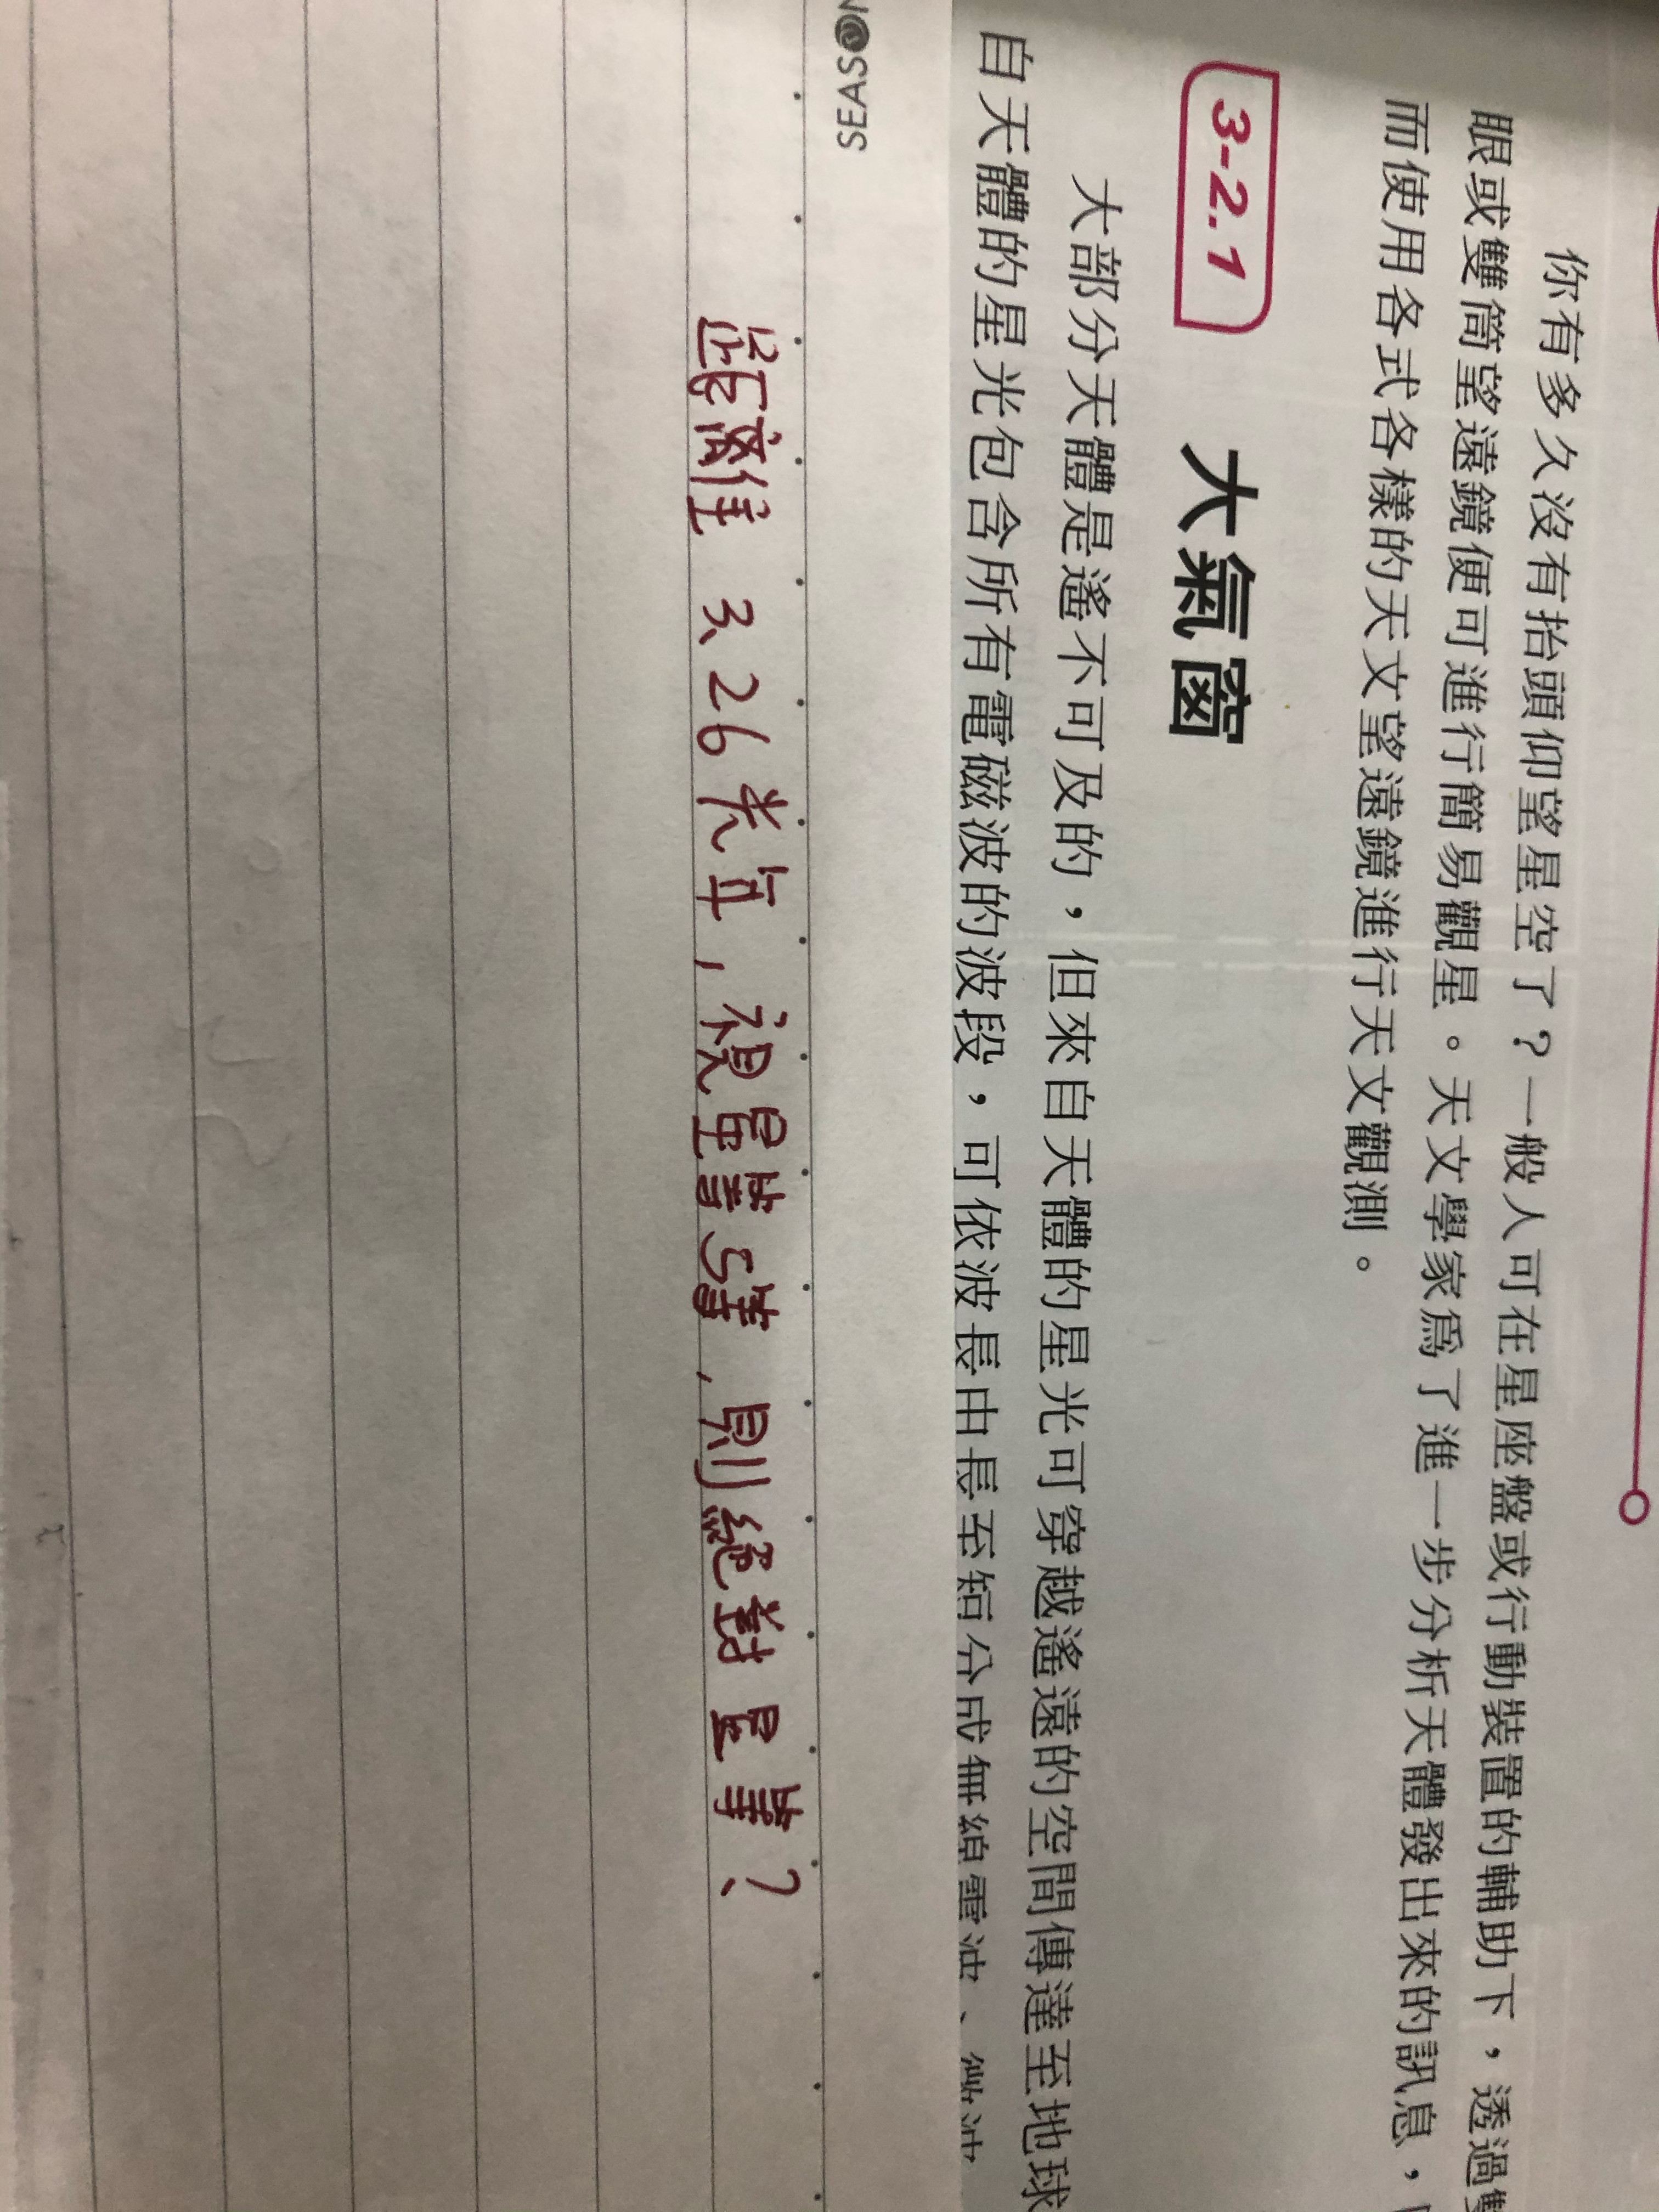 你有多久沒有抬頭仰望星空了？一般人可在星座盤或行動裝置的輔助下，透過雙
眼或雙筒望遠鏡便可進行簡易觀星。天文學家爲了進一步分析天體發出來的訊息，
而使用各式各樣的天文望遠鏡進行天文觀測。
3-2.1 大氣窗
大部分天體是遙不可及的，但來自天體的星光可穿越遙遠的空間傳達至地球
自天體的星光包含所有電磁波的波段，可依波長由長至短分成無線電波、微波
SEASON
距離 3.26光年，視星等5等，則絕對星等？